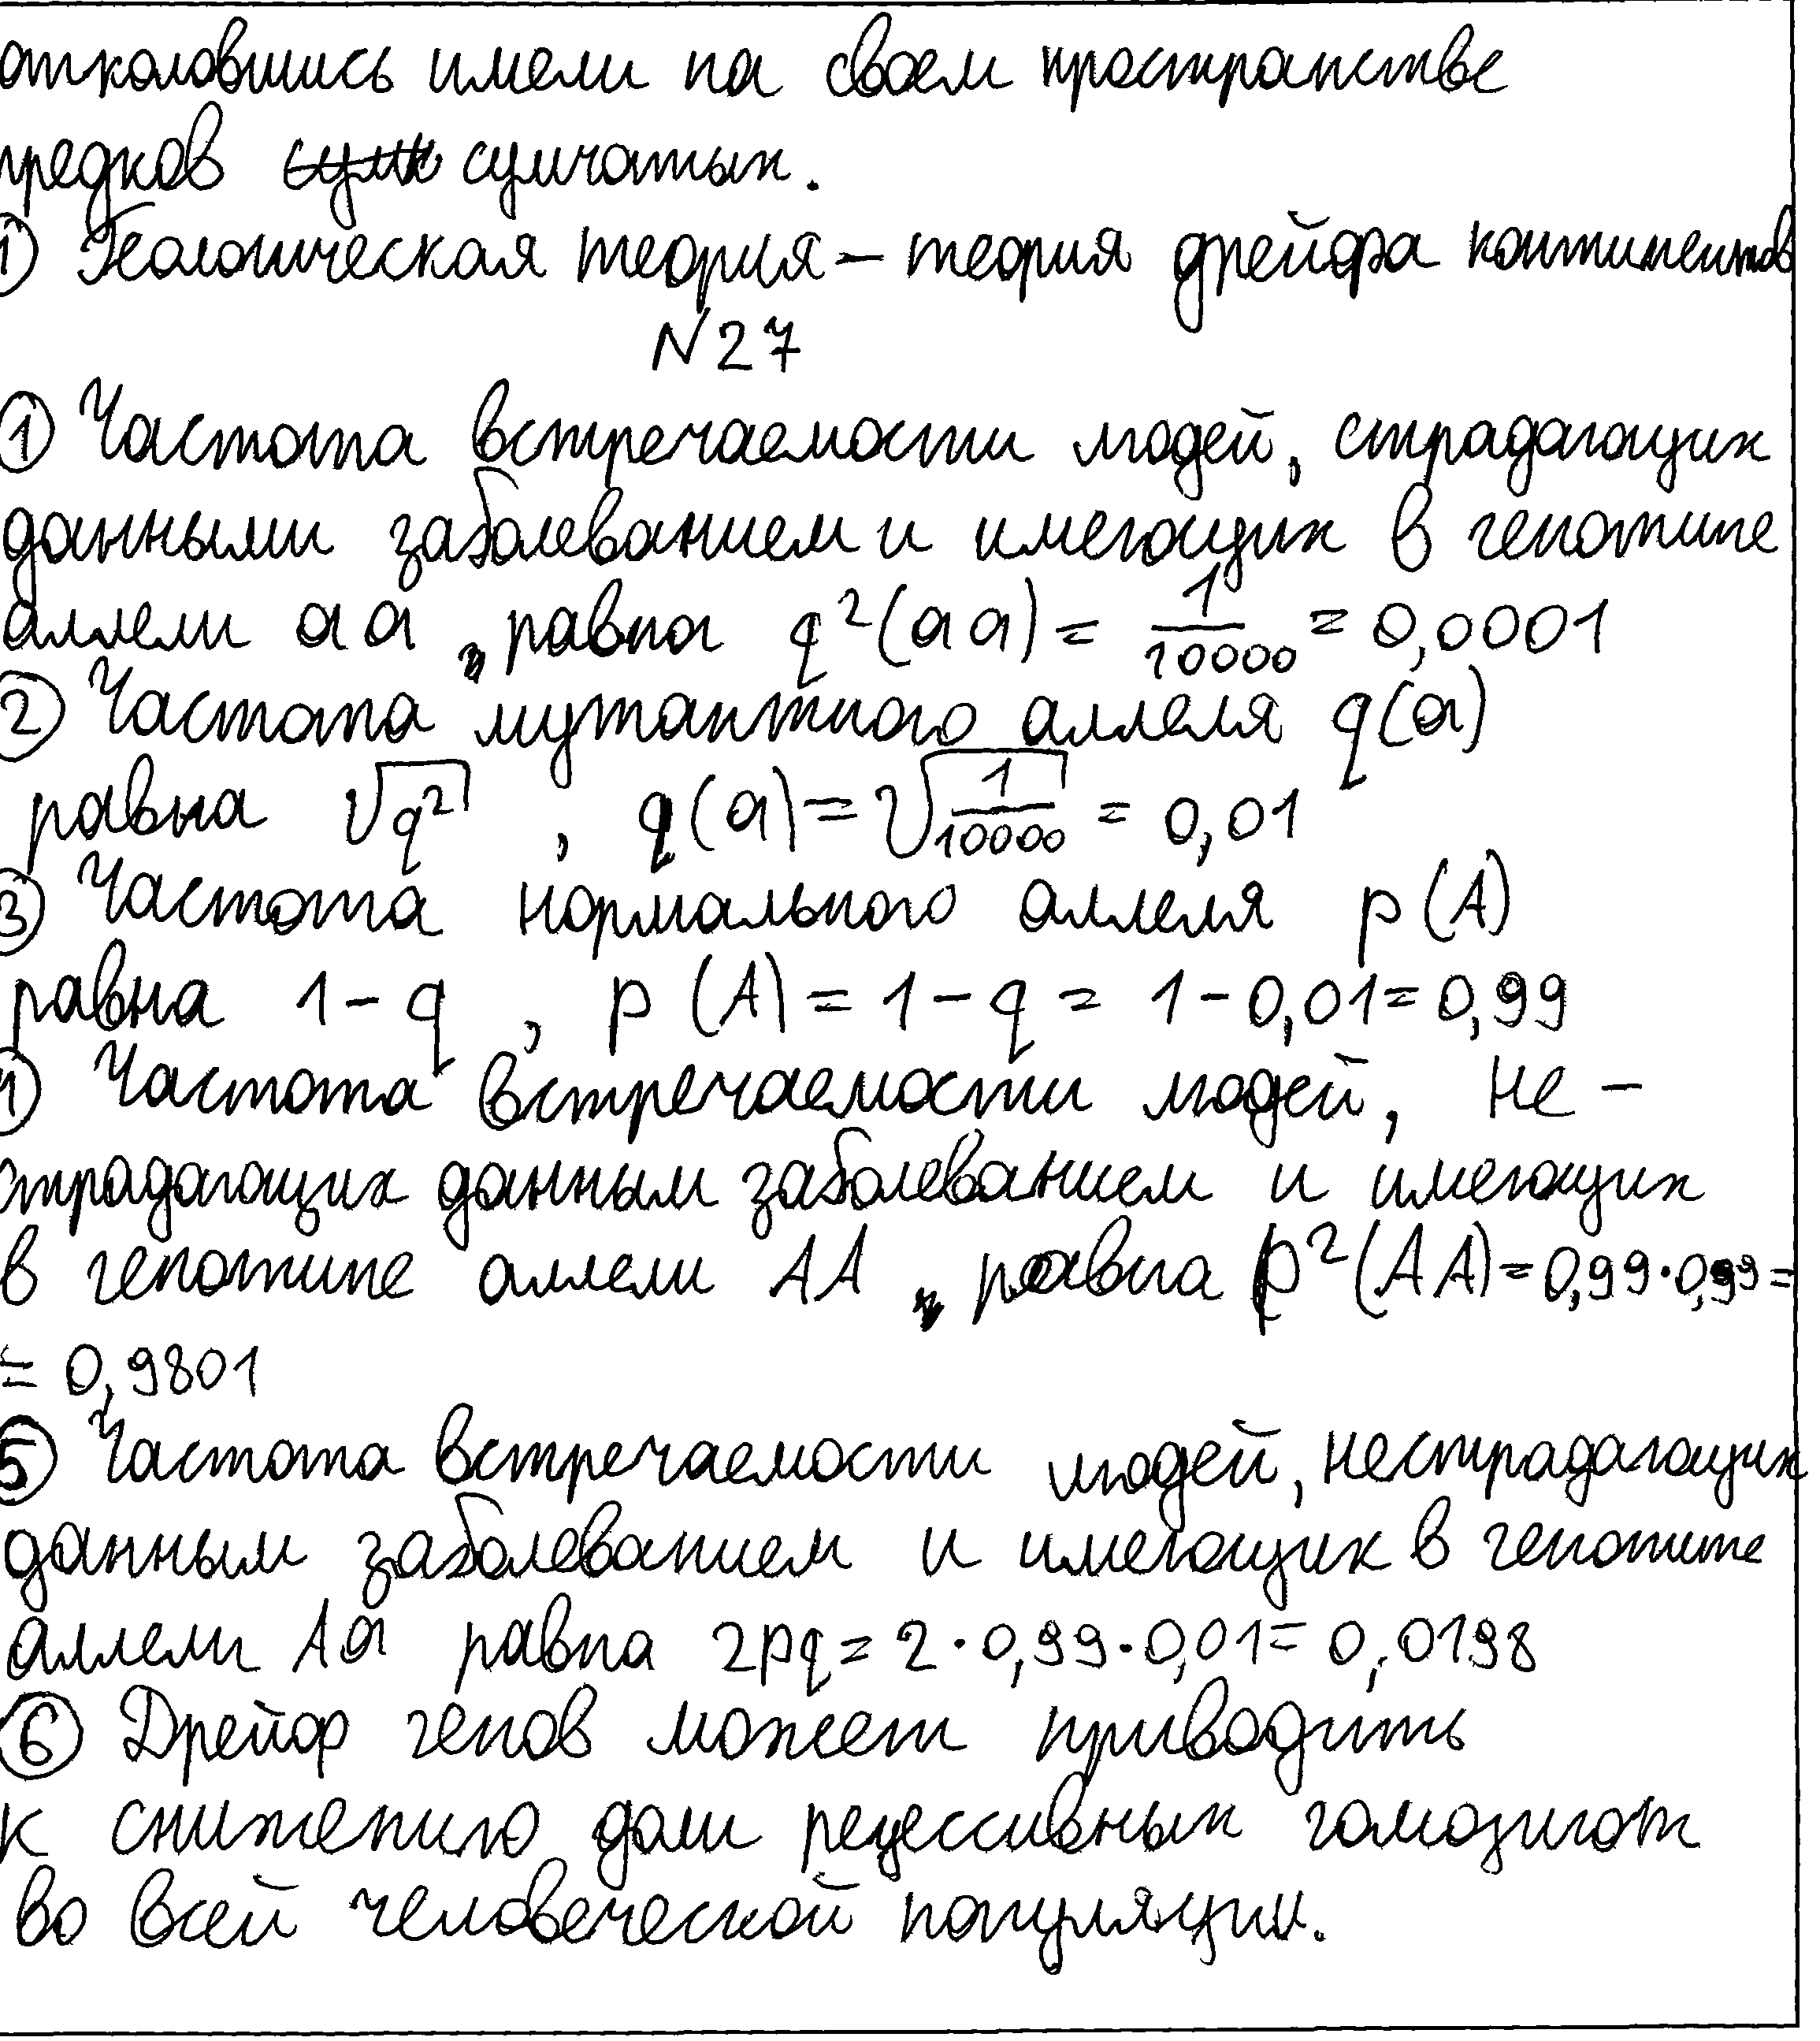 отколовшись имели на своем пространстве
предков сумчатых.
① Геологическая теория – теория дрейфа континентов
N27
① Частота встречаемости людей, страдающих
данными заболеванием и имеющих в генотипе
аллели аа, равна q²(аа) = 1/10000 = 0,0001
② Частота мутантного аллеля q(a)
равна √q², q(a) = √1/10000 = 0,01
③ Частота нормального аллеля p(A)
равна 1 - q, p(A) = 1 - q = 1 - 0,01 = 0,99
④ Частота встречаемости людей, не-
страдающих данным заболеванием и имеющих
в генотипе аллели АА, равна p²(AA) = 0,99·0,99 =
= 0,9801
⑤ Частота встречаемости людей, нестрадающих
данным заболеванием и имеющих в генотипе
аллели Аа равна 2pq = 2·0,99·0,01 = 0,0198
⑥ Дрейф генов может приводить
к снижению доли рецессивных гомозигот
во всей человеческой популяции.